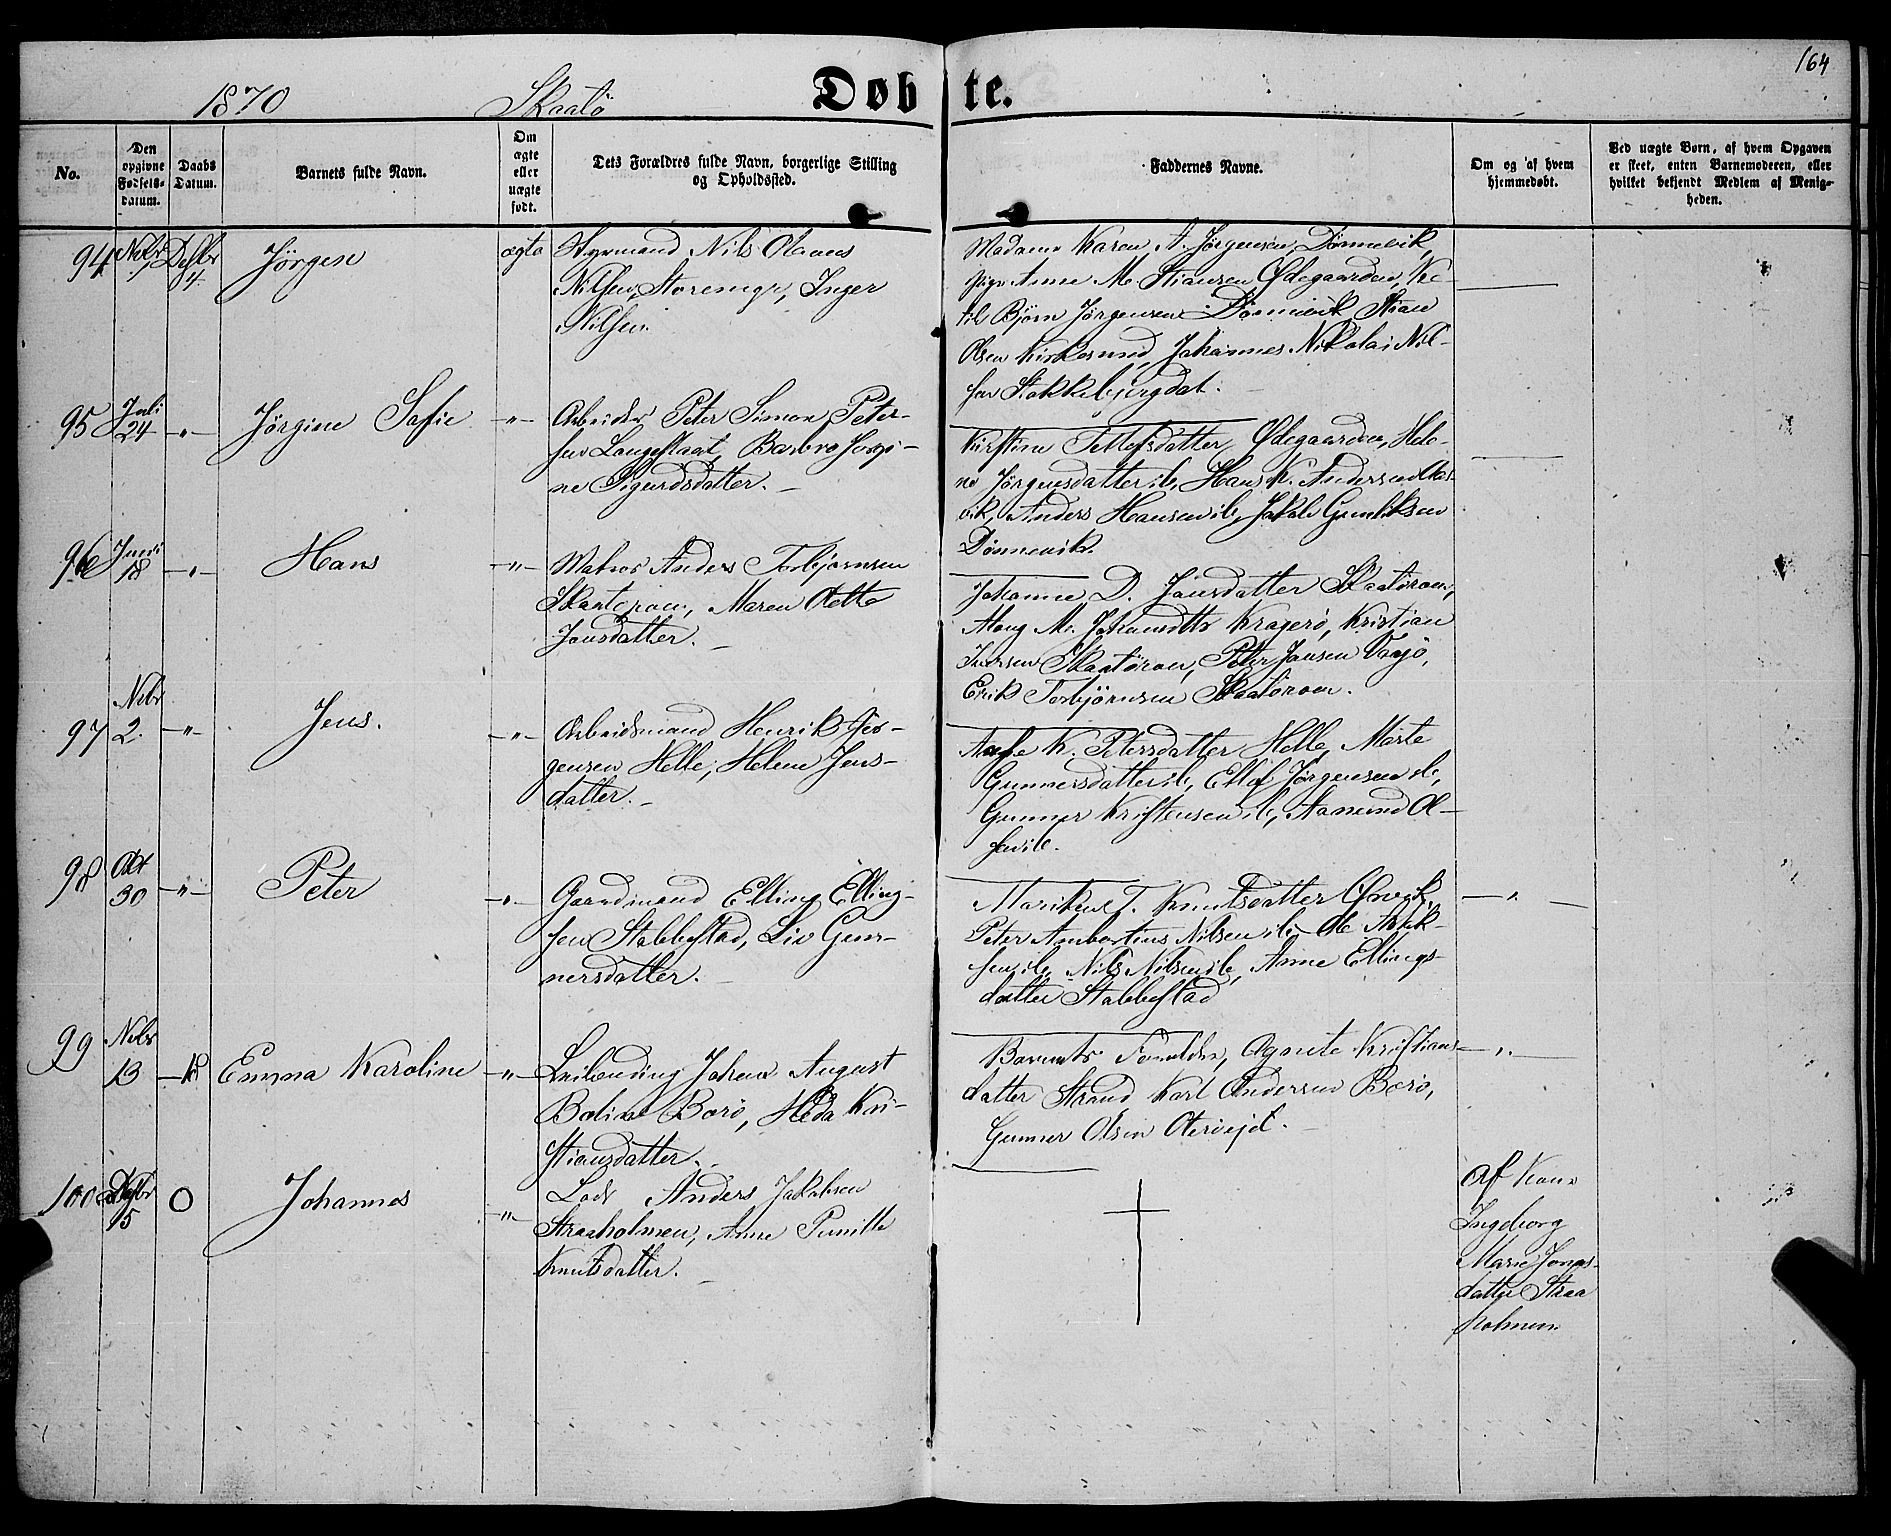 164
1870 Skaatö Døbte.
No.
Den opgivne Fødsels-datum.
Daabs Datum.
Barnets fulde Navn.
Om ægte eller uægte født.
Dets Forældres fulde Navn, borgerlige Stilling og Opholdssted.
Faddernes Navne.
Om og af hvem hjemmedøbt.
Ved uægte Børn, af hvem Opgaven er skeet, enten Barnemoderen, eller hvilket bekjendt Medlem af Menigheden.
94 Nvbr Desbr 4 Jörgen ægte
Styrmand Nils Olaus
Nilsen, Storeng, Inger
Nilsen.
Madame Karen A. Jörgensen Dönnevik,
Pige Anne M. Stiansen Ødegaarden, Ke-
til Björn Jörgensen Dönnevik Stian
Olsen Kirkesund, Johannes Nikolai Nil-
sen Stokkebjergdal.
95 Juli 24 -"- Jörgine Sofie -"-
Arbeider Peter Simon Peter-
sen Langestaat, Barbro Jörgi-
ne Sigurdsdatter. -
Kirstine Tellefsdatter Ødegaarden, Hele-
ne Jörgensdatter ib, Hans K. Andersen
vik, Anders Hansen ib, Jakob Gunliksen
Dönnevik.
96 Juni 18 -"- Hans -"-
Matros Anders Torbjörnsen
Skaatöroen, Maren
Jonsdatter. -
Johanne D. Jonsdatter Skaatöroen,
M. Kragerö, Kristian
Iversen Skaatöroen, Peter Jansen
Erik Torbjörnsen Skaatöroen.
97 Nvbr 2. -"- Jens. -"-
Arbeidsmand Henrik Jör-
gensen Helle, Helene Jens-
datter. -
K. Petersdatter Helle, Marte
Gunnersdatter ib, Ellef Jörgensen ib,
Gunner Kristensen ib, Aanund Ol-
sen ib.
98 Okt 30 -"- Peter -"-
Gaardmand Elling Elling-
sen Stabbestad, Liv Gun-
nersdatter. -
T. Knutsdatter
Peter Ambortius Nilsen ib, Ole
sen ib, Nils Nilsen ib, Anne Ellings-
datter Stabbestad
99 Nvbr 13 18 Emma Karoline -"-
Leilending Johan August
Bolin Borö, Heda Kri-
stiansdatter. -
Barnets Forældre, Agnete Kristians-
datter Strand Karl Andersen Borö,
Gunner Olsen
100 Desbr 15 O Johannes -"-
Lods Anders Jakobsen
Straaholmen, Anne Pernille
Knutsdatter. -
af Kone
Ingeborg
Marie Jons-
datter Straa
holmen